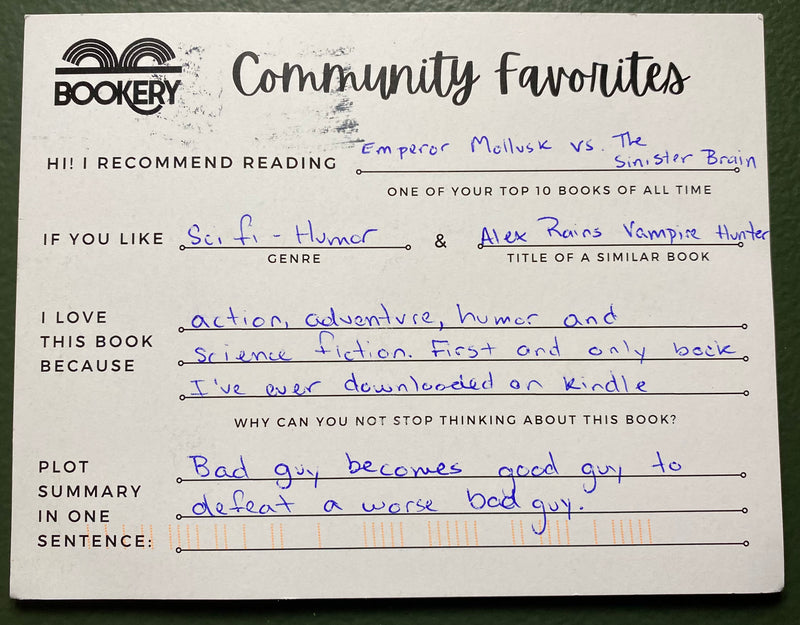 BOOKERY
Community Favorites
HI! I RECOMMEND READING Emperor Mollusk vs. The
Sinister Brain
ONE OF YOUR TOP 10 BOOKS OF ALL TIME
IF YOU LIKE Sci fi - Humor & Alex Rains Vampire Hunter
GENRE TITLE OF A SIMILAR BOOK
I LOVE action, adventure, humor and
THIS BOOK science fiction. First and only book
BECAUSE I've ever downloaded on kindle
WHY CAN YOU NOT STOP THINKING ABOUT THIS BOOK?
PLOT Bad guy becomes good guy to
SUMMARY defeat a worse bad guy.
IN ONE
SENTENCE: